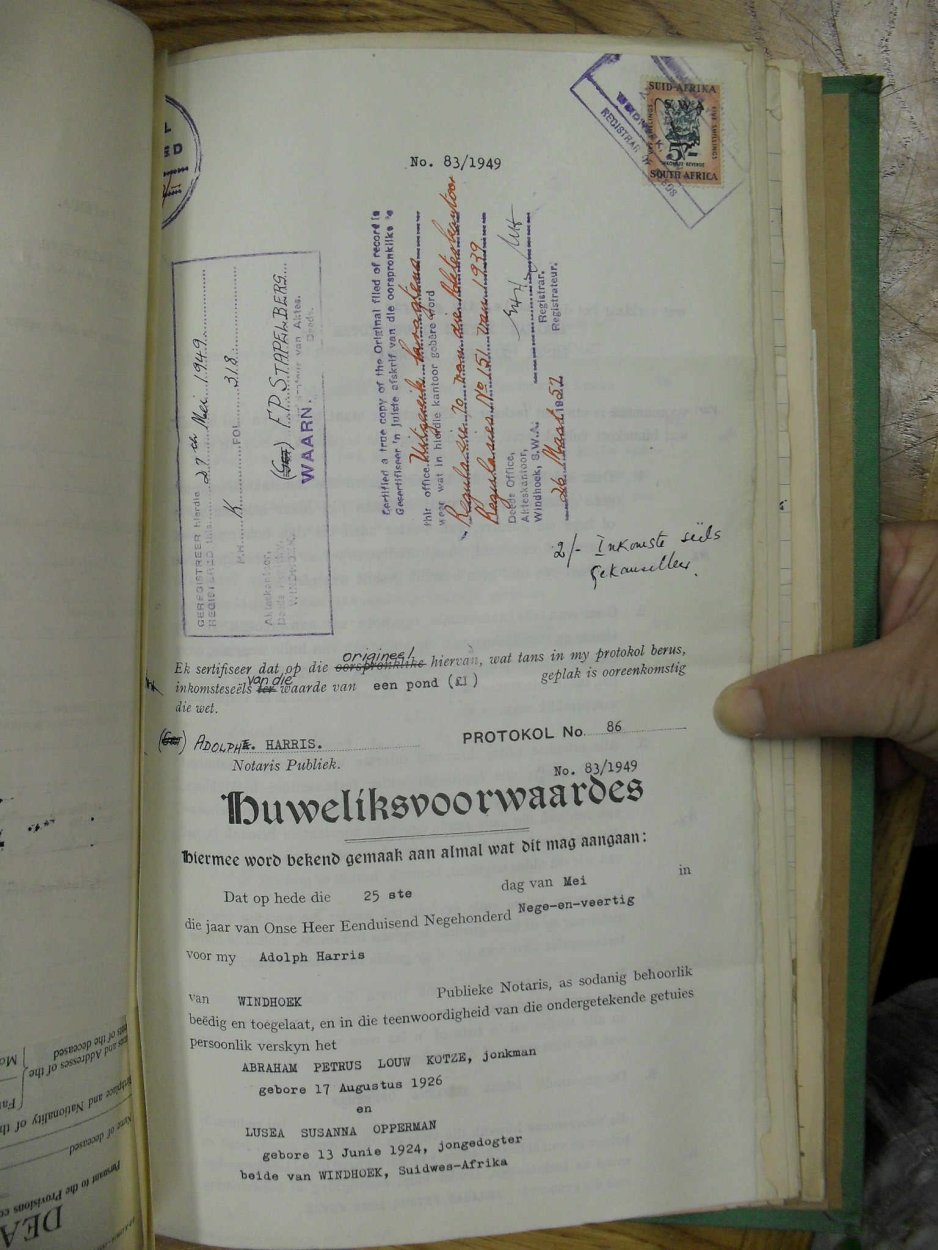 SUID-AFRIKA
S.W.A
5/-
SOUTH AFRICA
FIVE SHILLINGS
WINDHOEK
REGISTRAR OF DEEDS
No. 83/1949
GEREGISTREER hierdie 27ste Mei 1949
REGISTERED this
K FOL. 318
(Get) F.P. STAPELBERG
van Aktes.
Deeds.
WAARN.
Akteskantoor,
WINDHOEK
Certified a true copy of the Original filed of record in
Gesertifiseer 'n juiste afskrif van die oorspronklike is
this office. Uitgereik kragtens
weer wat in hierdie kantoor gebêre word
Regulasie 70 van die Akteskantoor
Regulasies No 151 van 1939.
Deeds Office,
Akteskantoor,
Windhoek, S.W.A.
Registrar.
Registrateur.
26 Maart 1957
2/- Inkomste seëls
gekanselleer.
Ek sertifiseer dat op die oorspronklike origineel hiervan, wat tans in my protokol berus,
inkomsteseëls ter van die waarde van een pond (£1) geplak is ooreenkomstig
die wet.
(Get) ADOLPH. HARRIS. PROTOKOL No. 86
Notaris Publiek.
No. 83/1949
Huweliksvoorwaardes
Hiermee word bekend gemaak aan almal wat dit mag aangaan:
Dat op hede die 25 ste dag van Mei in
die jaar van Onse Heer Eenduisend Negehonderd Nege-en-veertig
voor my Adolph Harris
van WINDHOEK Publieke Notaris, as sodanig behoorlik
beëdig en toegelaat, en in die teenwoordigheid van die ondergetekende getuies
persoonlik verskyn het
ABRAHAM PETRUS LOUW KOTZE, jonkman
gebore 17 Augustus 1926
en
LUSEA SUSANNA OPPERMAN
gebore 13 Junie 1924, jongedogter
beide van WINDHOEK, Suidwes-Afrika
and Addresses of the
of the deceased
and Nationality of
Name of deceased
Pursuant to the Provisions
DEA